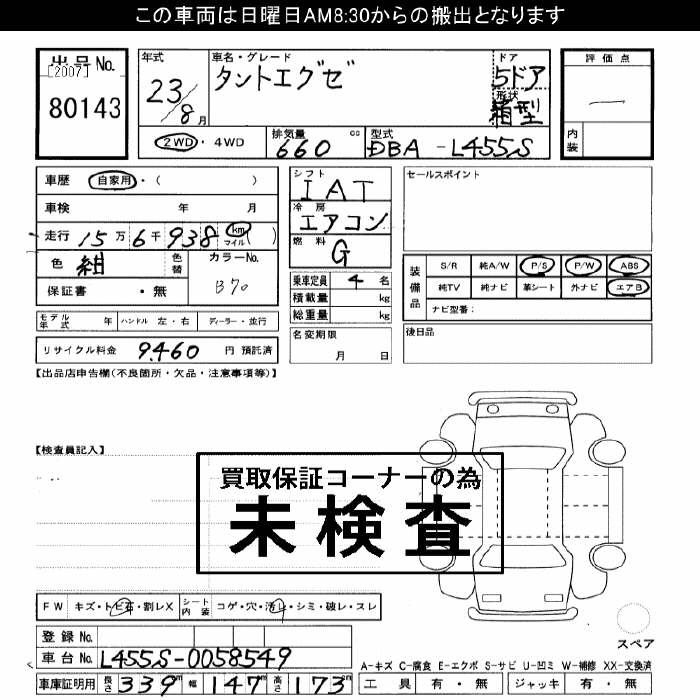 この車両は日曜日AM8:30からの搬出となります
出品番号No.
[2007]
80143
年式 23/8月
車名・グレード タントエグゼ
ドア 5ドア
形状 箱型
評価点 —
内装
2WD・4WD
排気量 660 cc
型式 DBA-L455S
車歴 自家用・( )
車検 年 月
走行 15万6千938 km マイル ( )
色 紺 色替
カラーNo. B70
保証書 ・無
シフト IAT
冷房 エアコン
燃料 G
乗車定員 4 名
積載量 kg
総重量 kg
セールスポイント
装備品 S/R 純A/W P/S P/W ABS
純TV 純ナビ 革シート 外ナビ エアB
ナビ型番:
モデル年式 年 ハンドル 左・右 ディーラー・並行
名変期限 月 日
後日品
リサイクル料金 9460 円 預託済
【出品店申告欄(不良箇所・欠品・注意事項等)】
【検査員記入】
買取保証コーナーの為
未検査
FW キズ・トビ石・割レX シート内装 コゲ・穴・汚レ・シミ・破レ・スレ
登録No.
車台No. L455S-0058549
スペア
A-キズ C-腐食 E-エクボ S-サビ U-凹ミ W-補修 XX-交換済
車庫証明用 長さ 339m 幅 147m 高さ 173cm
工具 有・無 ジャッキ 有・無